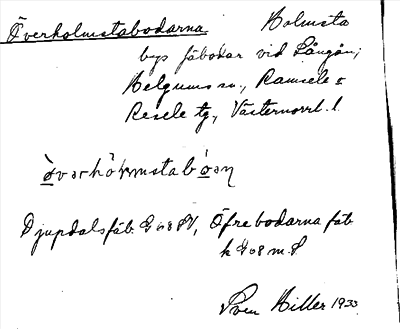 Överholmstabodarna. Holmsta
bys fäbodar vid Långån;
Helgums sn., Ramsele o
Resele tg., Västernorrl. l.
Djupdalsfäb. G 08 SV, Öfre bodarna fäb
k G 08 m. S
Sven Hiller 1933